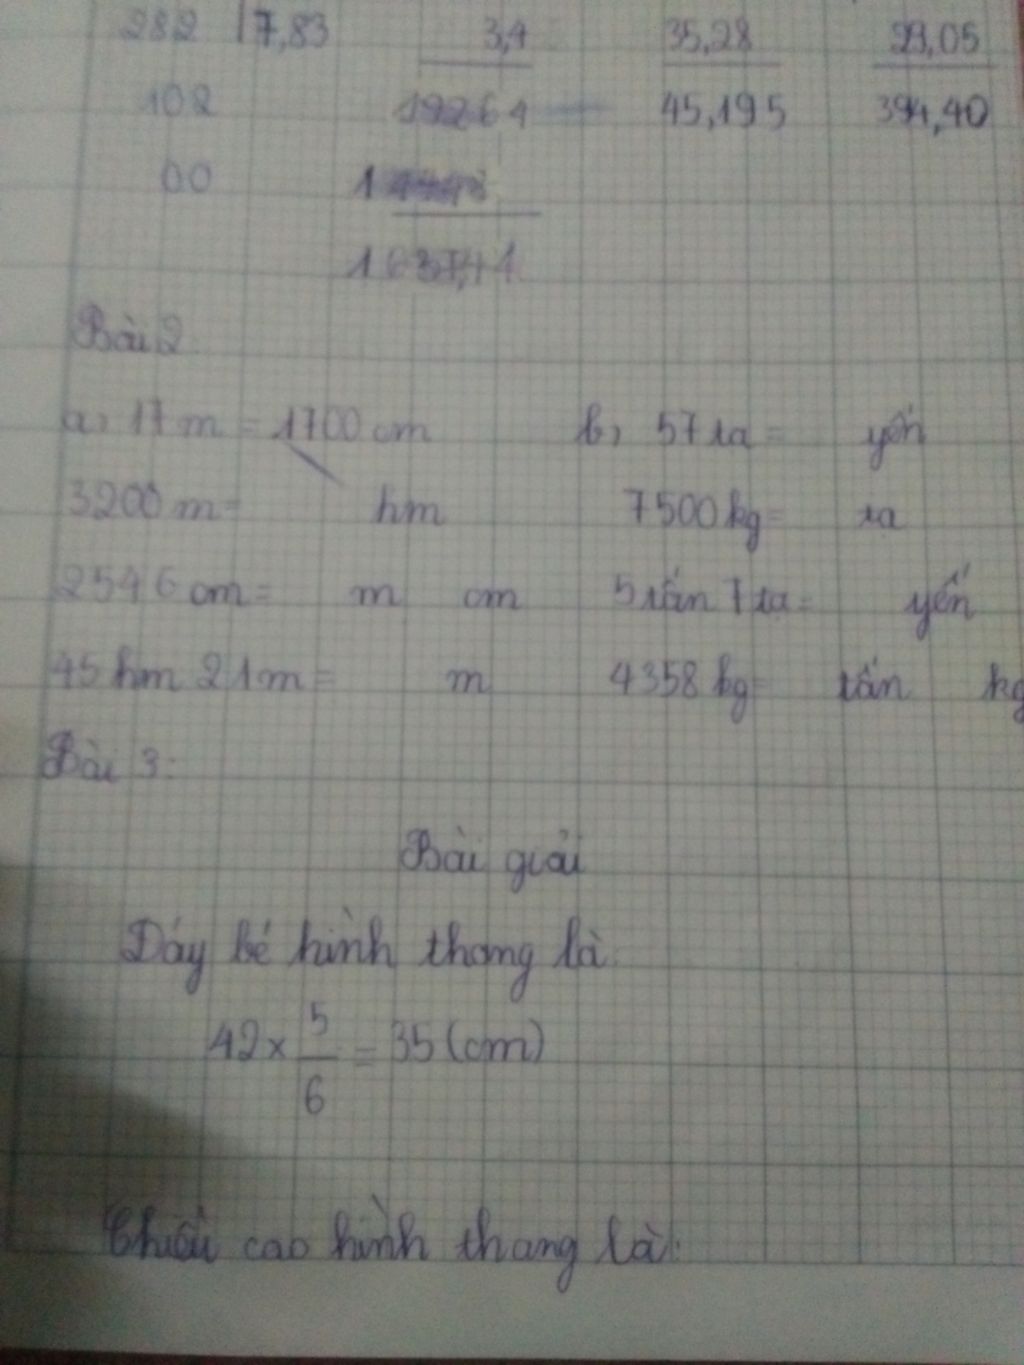 282 7,83 3,4 35,28 23,05
102 19264 45,195 394,40
00 1
Bài 2
a, 17 m = 1700 cm b, 57 tạ = yến
3200 m = hm 7500 kg = tạ
2546 cm = m cm 5 tấn 7 tạ = yến
45 hm 21 m = m 4358 kg = tấn kg
Bài 3:
Bài giải
Đáy bé hình thang là:
42 x 5/6 = 35 (cm)
Chiều cao hình thang là: